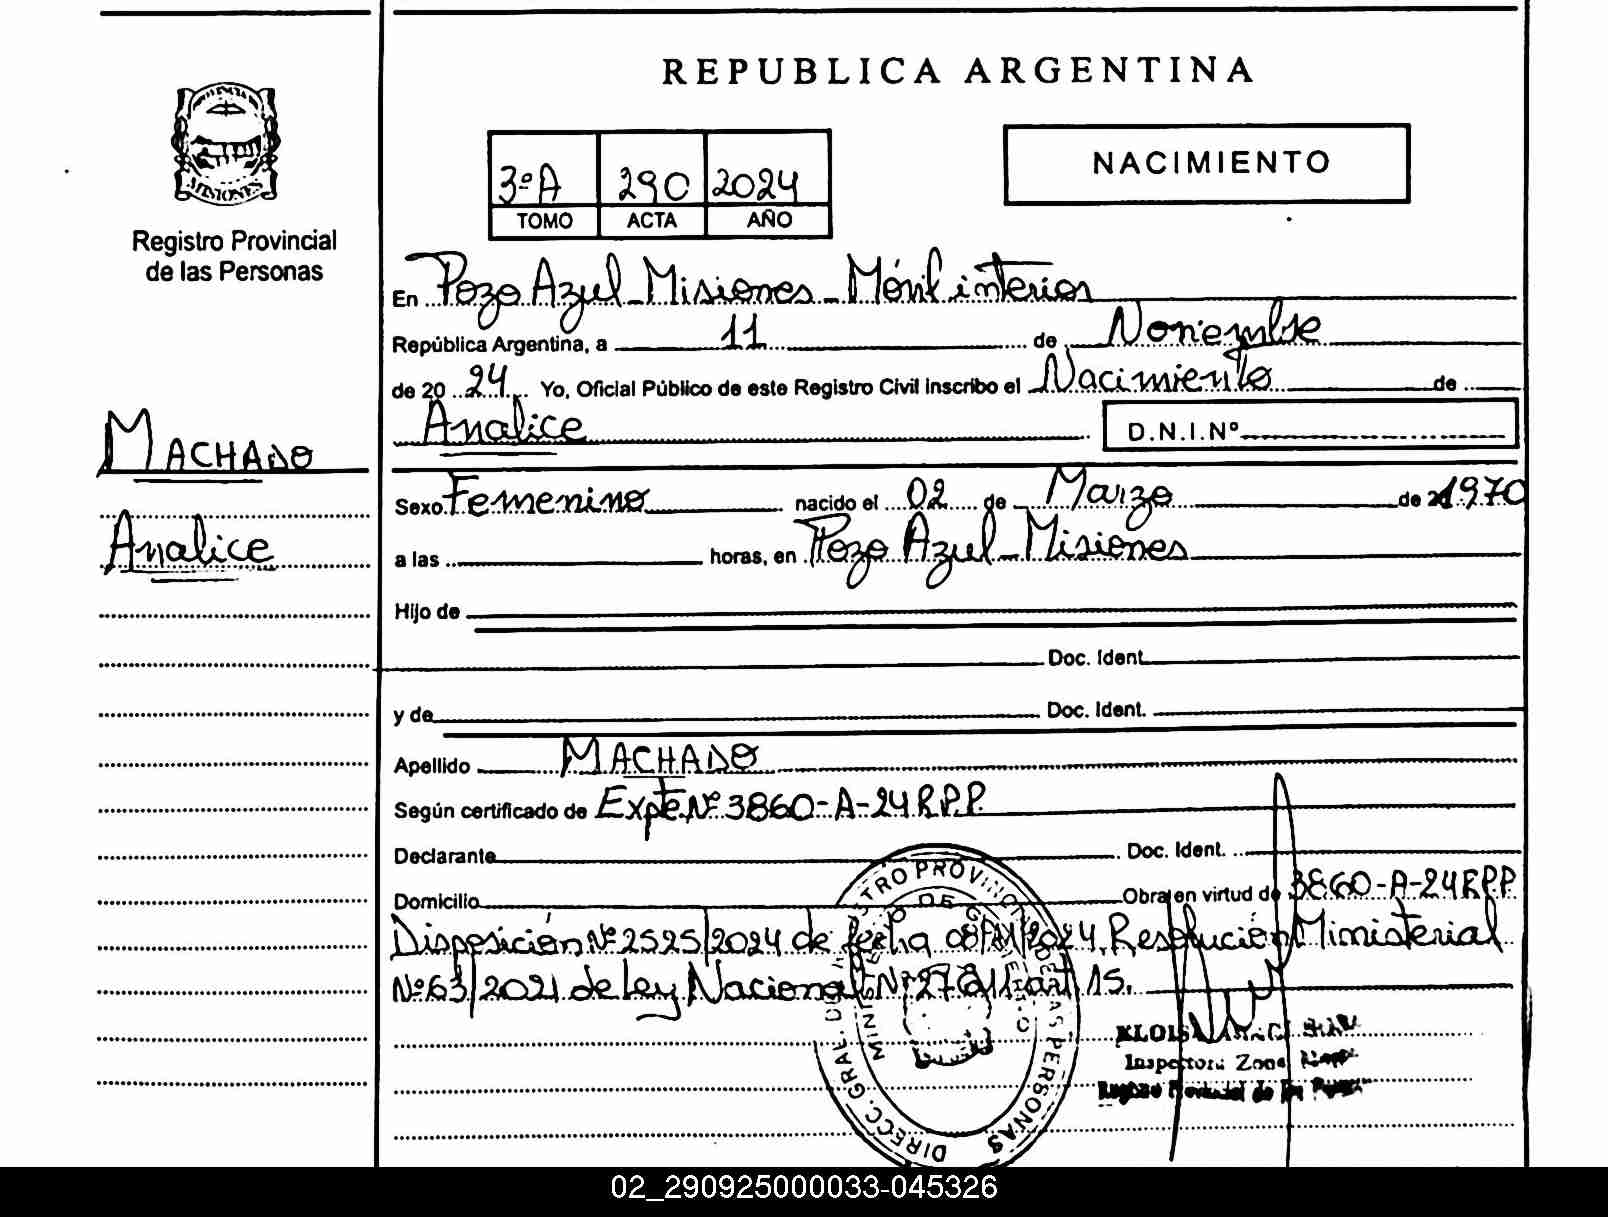 REPUBLICA ARGENTINA
PROVINCIA DE
MISIONES
Registro Provincial
de las Personas
3ºA 290 2024
TOMO ACTA AÑO
NACIMIENTO
En Pozo Azul - Misiones - Móvil interior
República Argentina, a 11 de Noviembre
de 2024 Yo, Oficial Público de este Registro Civil inscribo el Nacimiento de
Analice
D.N.I.Nº
MACHADO
Analice
Sexo Femenino nacido el 02 de Marzo de 1970
a las horas, en Pozo Azul - Misiones
Hijo de
Doc. Ident.
y de Doc. Ident.
Apellido MACHADO
Según certificado de Expte Nº 3860-A-24 R.P.P.
Declarante Doc. Ident.
Domicilio Obra en virtud de 3860-A-24 R.P.P.
Disposición Nº 2525/2024 de fecha 08/11/2024, Resolución Ministerial
Nº 63/2021 de Ley Nacional Nº 27611 art 15.
DIRECC. GRAL. DEL REGISTRO PROVINCIAL DE LAS PERSONAS
MINISTERIO DE GOBIERNO
Inspectora Zona
Registro Provincial de las
02_290925000033-045326